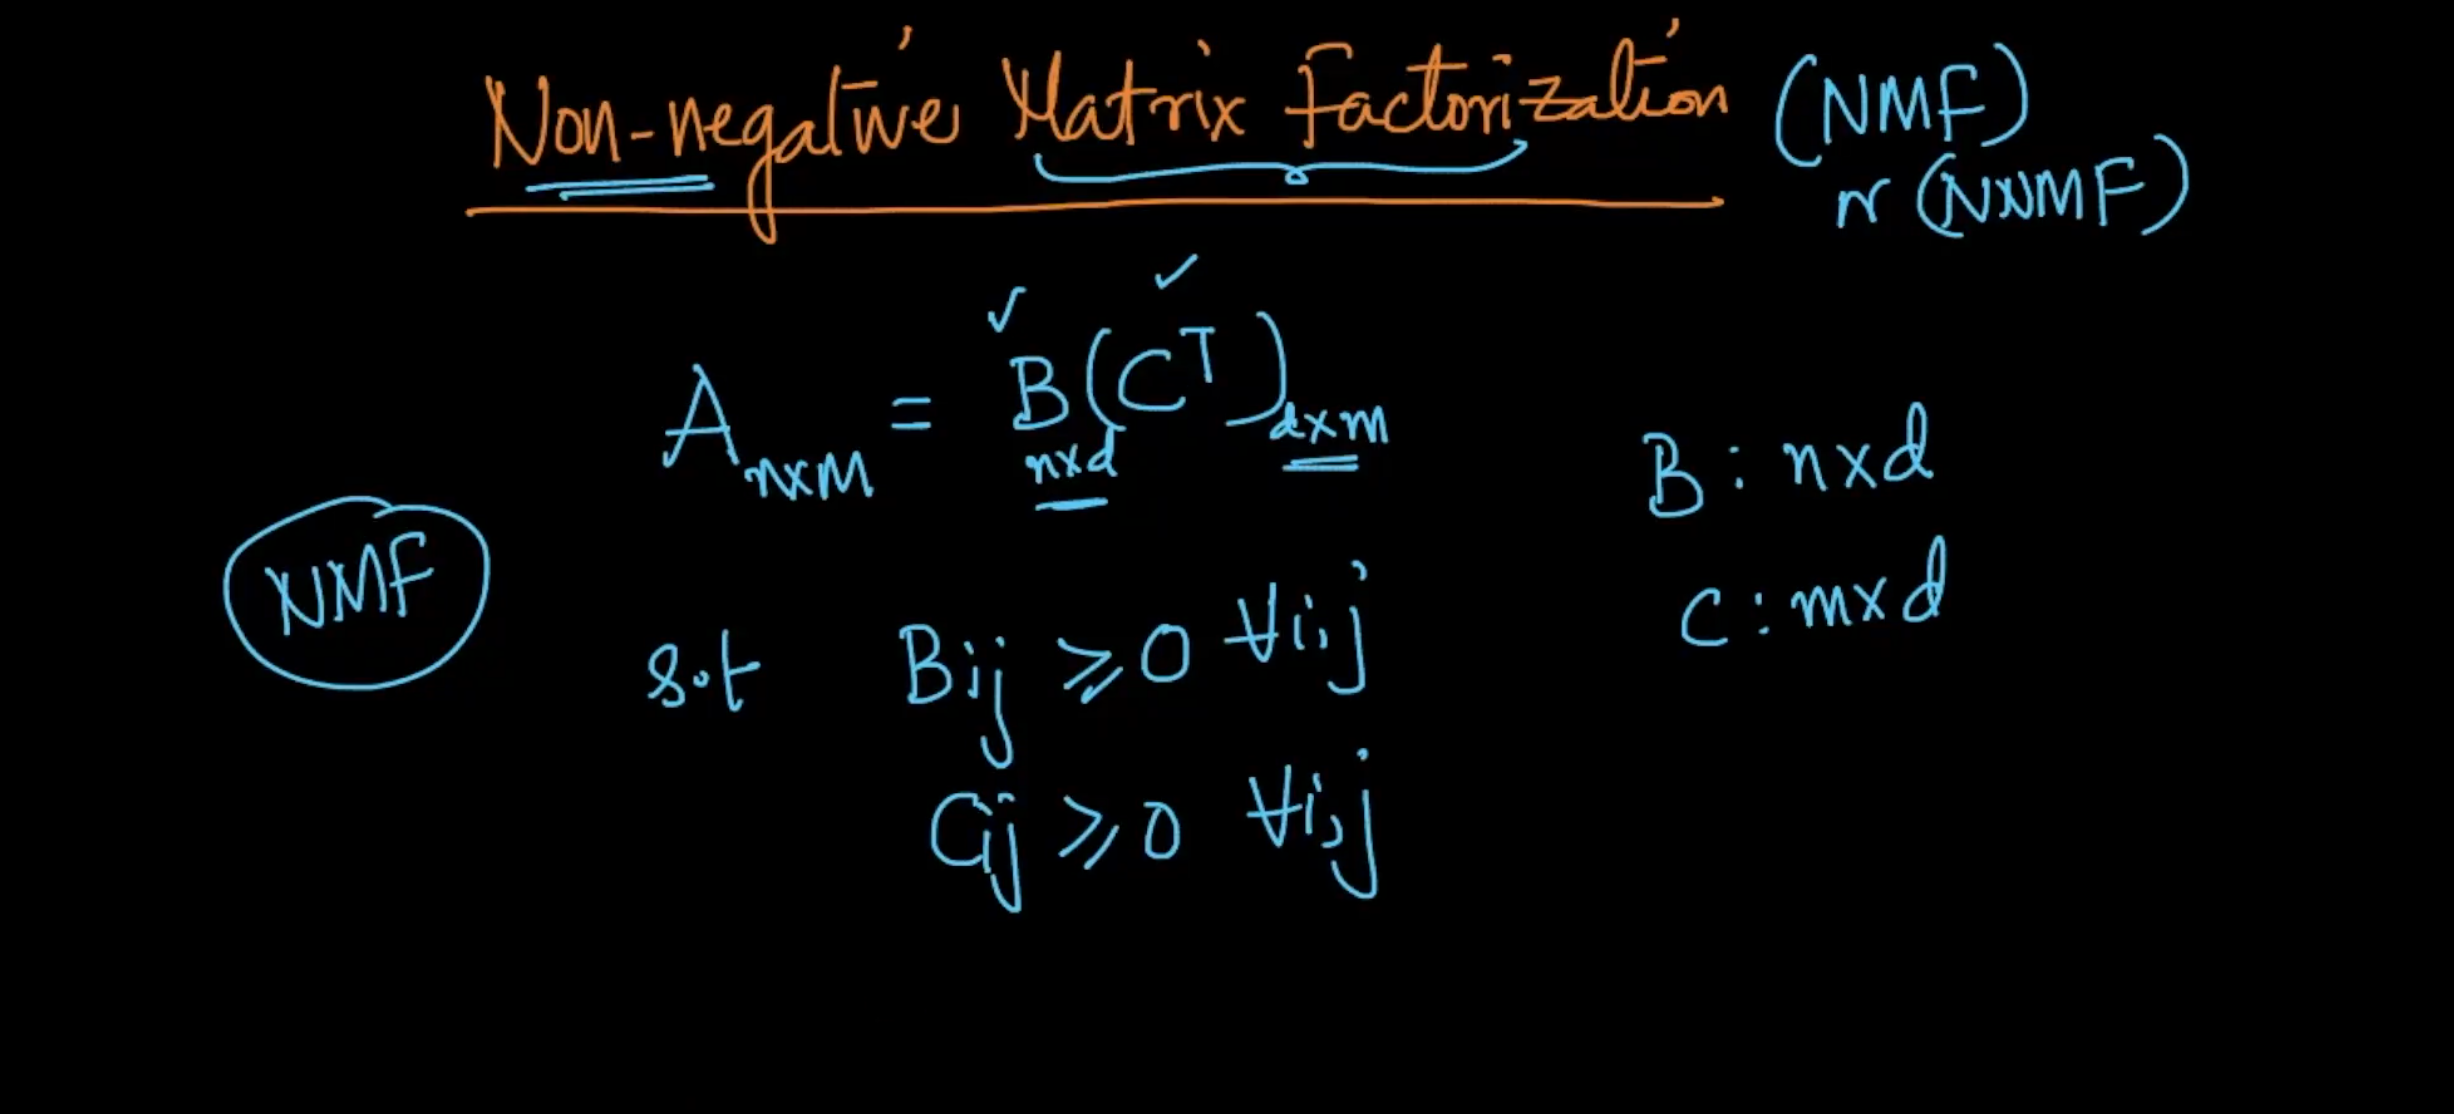 Non-negative Matrix Factorization (NMF)
or (NNMF)
A n×m = B n×d (C^T) d×m
B : n×d
NMF
C : m×d
s.t Bij ≥ 0 ∀i,j
Cij ≥ 0 ∀i,j